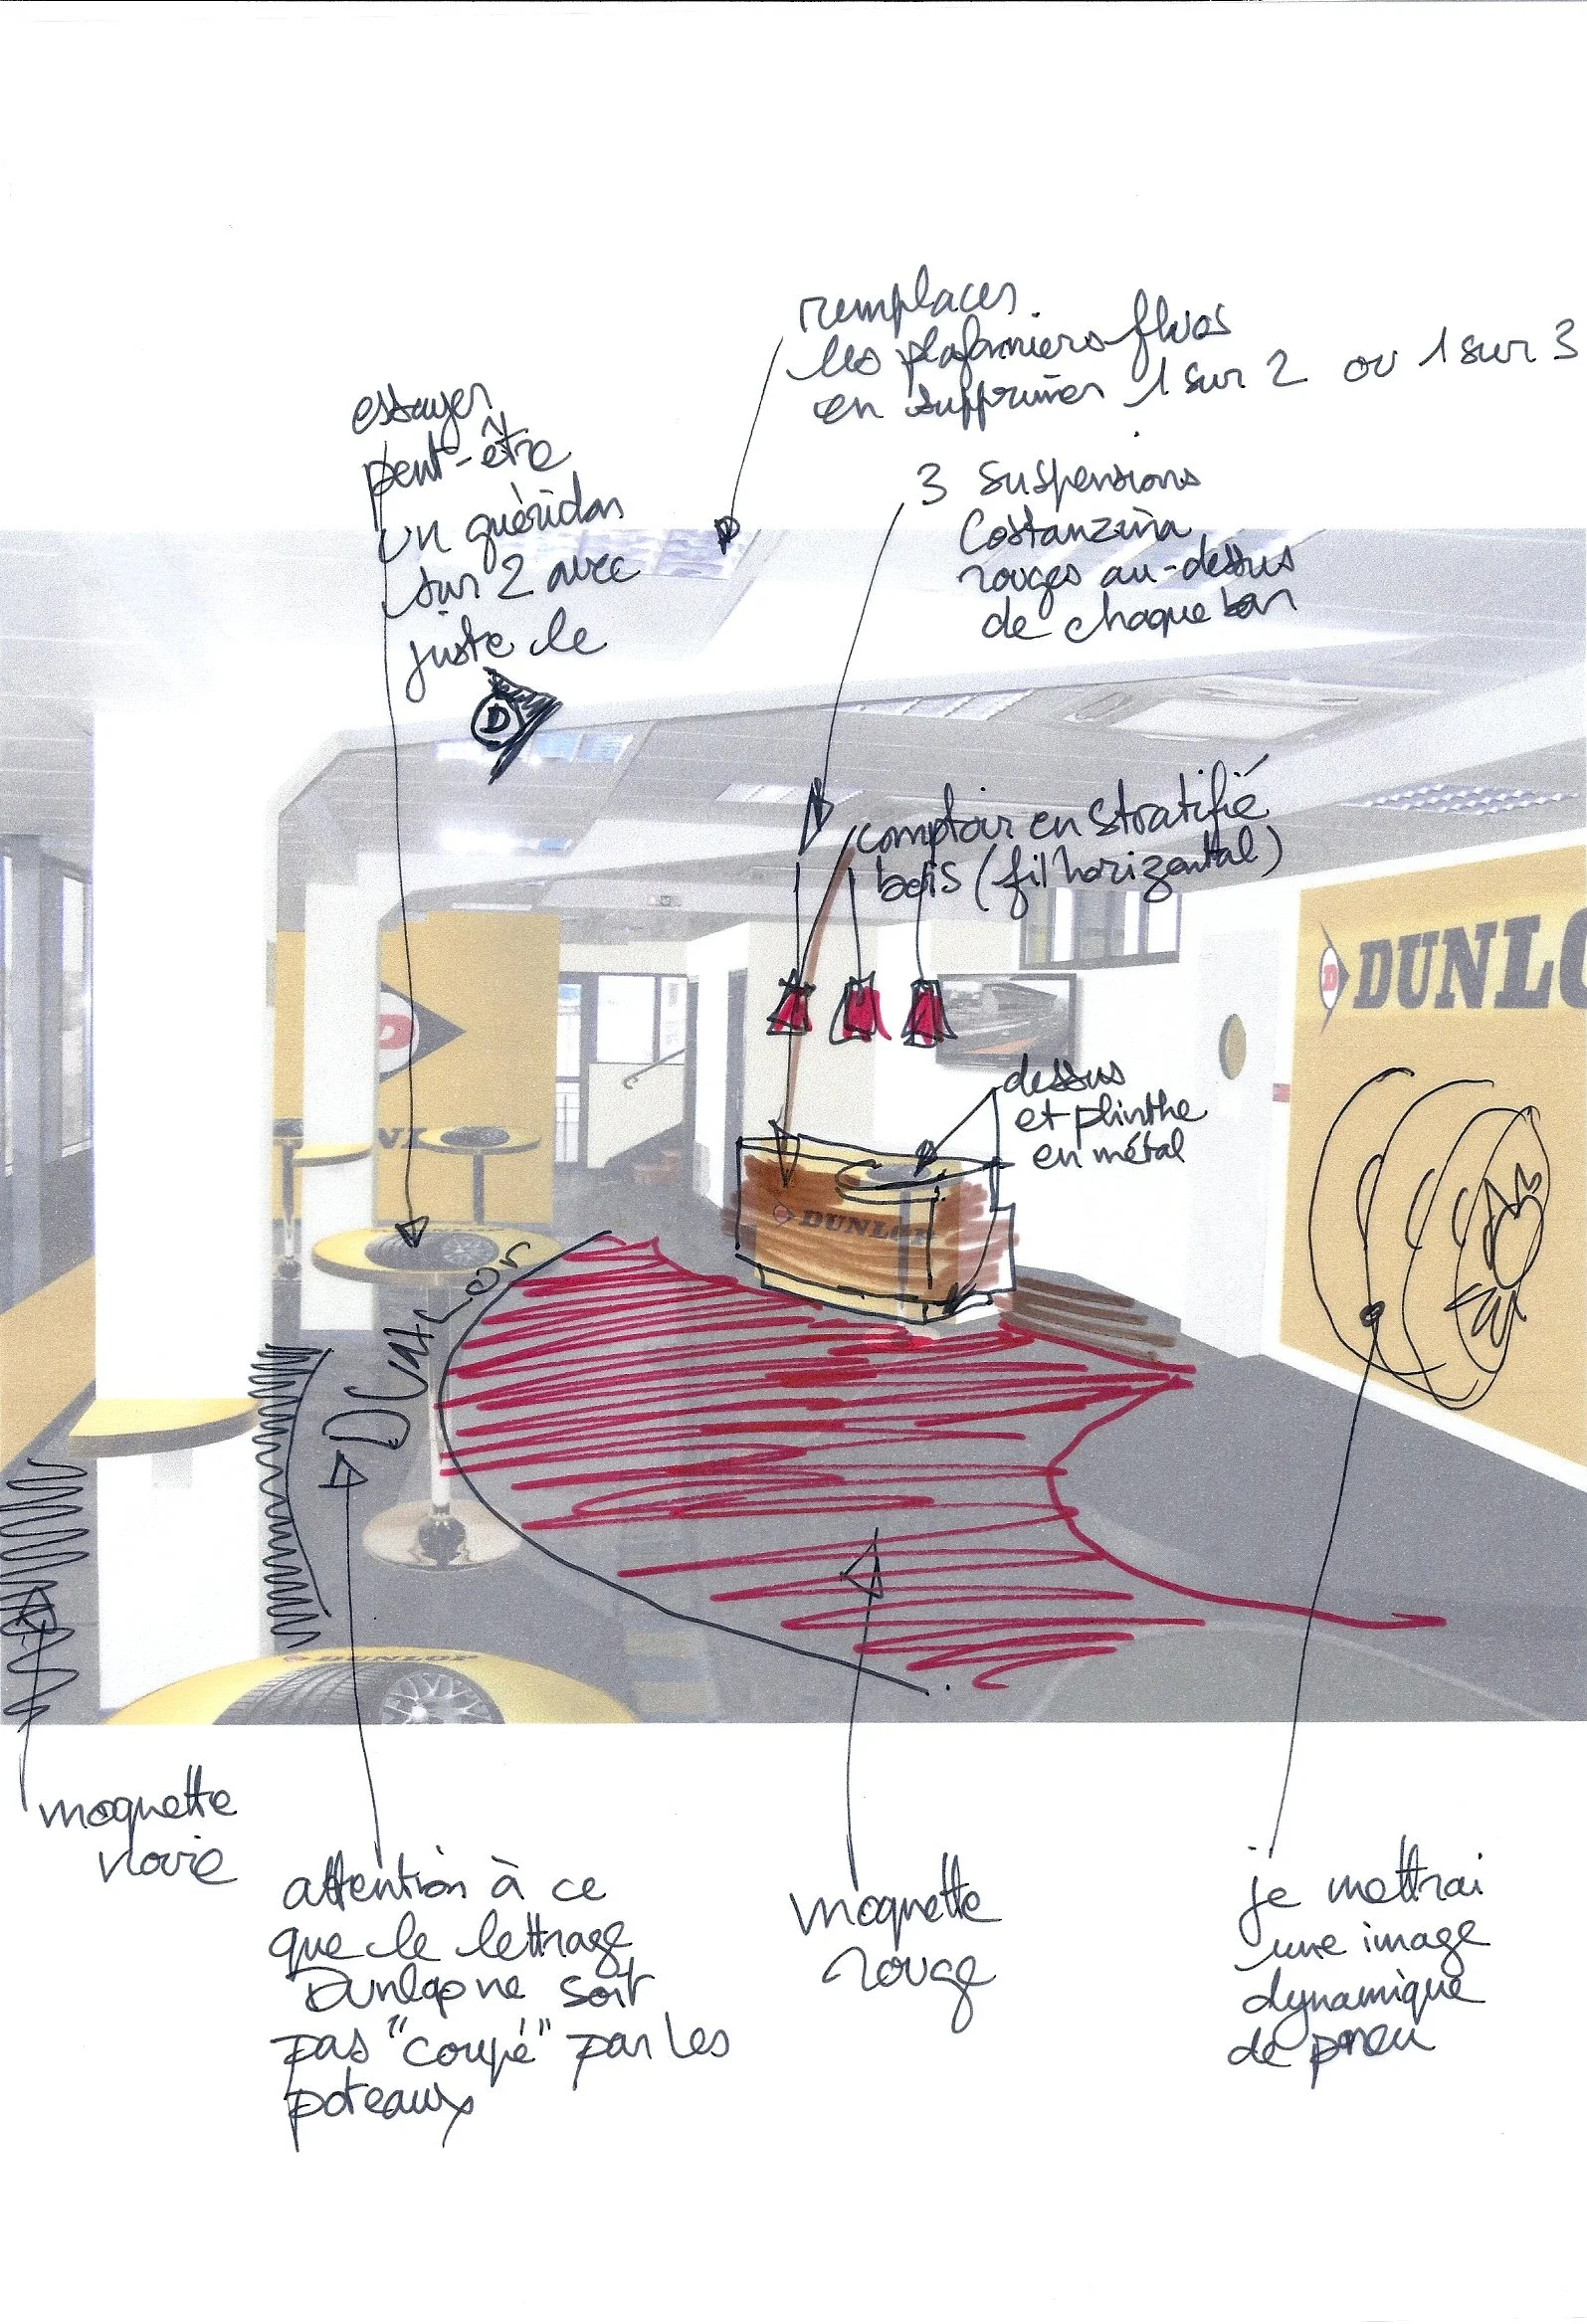 remplacer
les plafonniers fluos
en supprimer 1 sur 2 ou 1 sur 3
essayer
peut-être
un guéridon
sur 2 avec
juste le
D
3 suspensions
Costanzina
rouges au-dessus
de chaque bar
comptoir en stratifié
bois (fil horizontal)
DUNLO
D
dessus
et plinthe
en métal
DUNLOP
DUNLOP
moquette
noire
attention à ce
que le lettrage
Dunlop ne soit
pas "coupé" par les
poteaux
moquette
rouge
je mettrai
une image
dynamique
de pneu